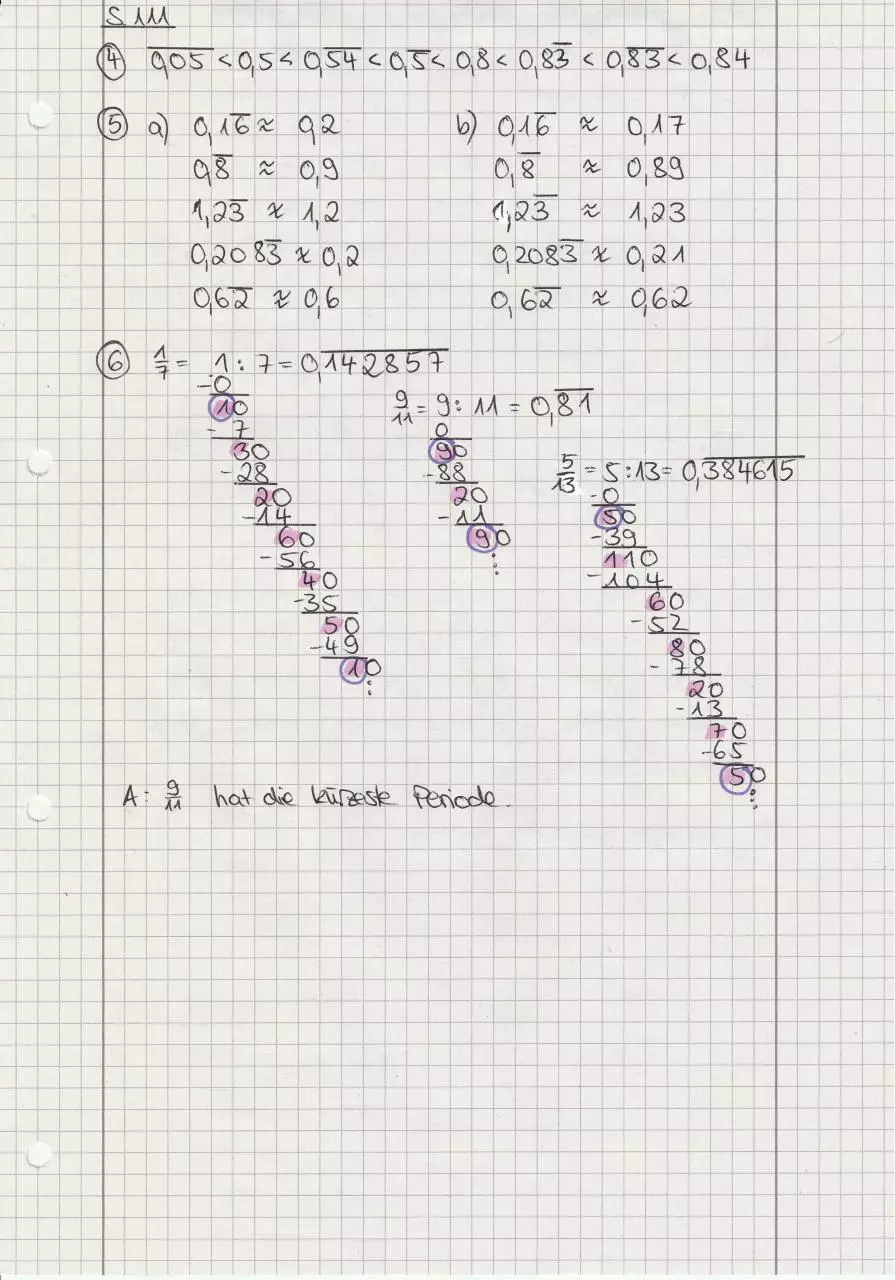 S 111
④ 0,0̅5̅ < 0,5 < 0,5̅4̅ < 0,5̅ < 0,8 < 0,83̅ < 0,8̅3̅ < 0,84
⑤ a) 0,16̅ ≈ 0,2 b) 0,16̅ ≈ 0,17
0,8̅ ≈ 0,9 0,8̅ ≈ 0,89
1,23̅ ≈ 1,2 1,23̅ ≈ 1,23
0,2083̅ ≈ 0,2 0,2083̅ ≈ 0,21
0,62̅ ≈ 0,6 0,62̅ ≈ 0,62
⑥ 1/7 = 1 : 7 = 0,1̅4̅2̅8̅5̅7̅
-0
10
- 7
30
-28
20
-14
60
-56
40
-35
50
-49
10
⋮
9/11 = 9 : 11 = 0,8̅1̅
0
90
-88
20
-11
90
⋮
5/13 = 5 : 13 = 0,3̅8̅4̅6̅1̅5̅
-0
50
-39
110
-104
60
-52
80
-78
20
-13
70
-65
50
⋮
A: 9/11 hat die kürzeste Periode.